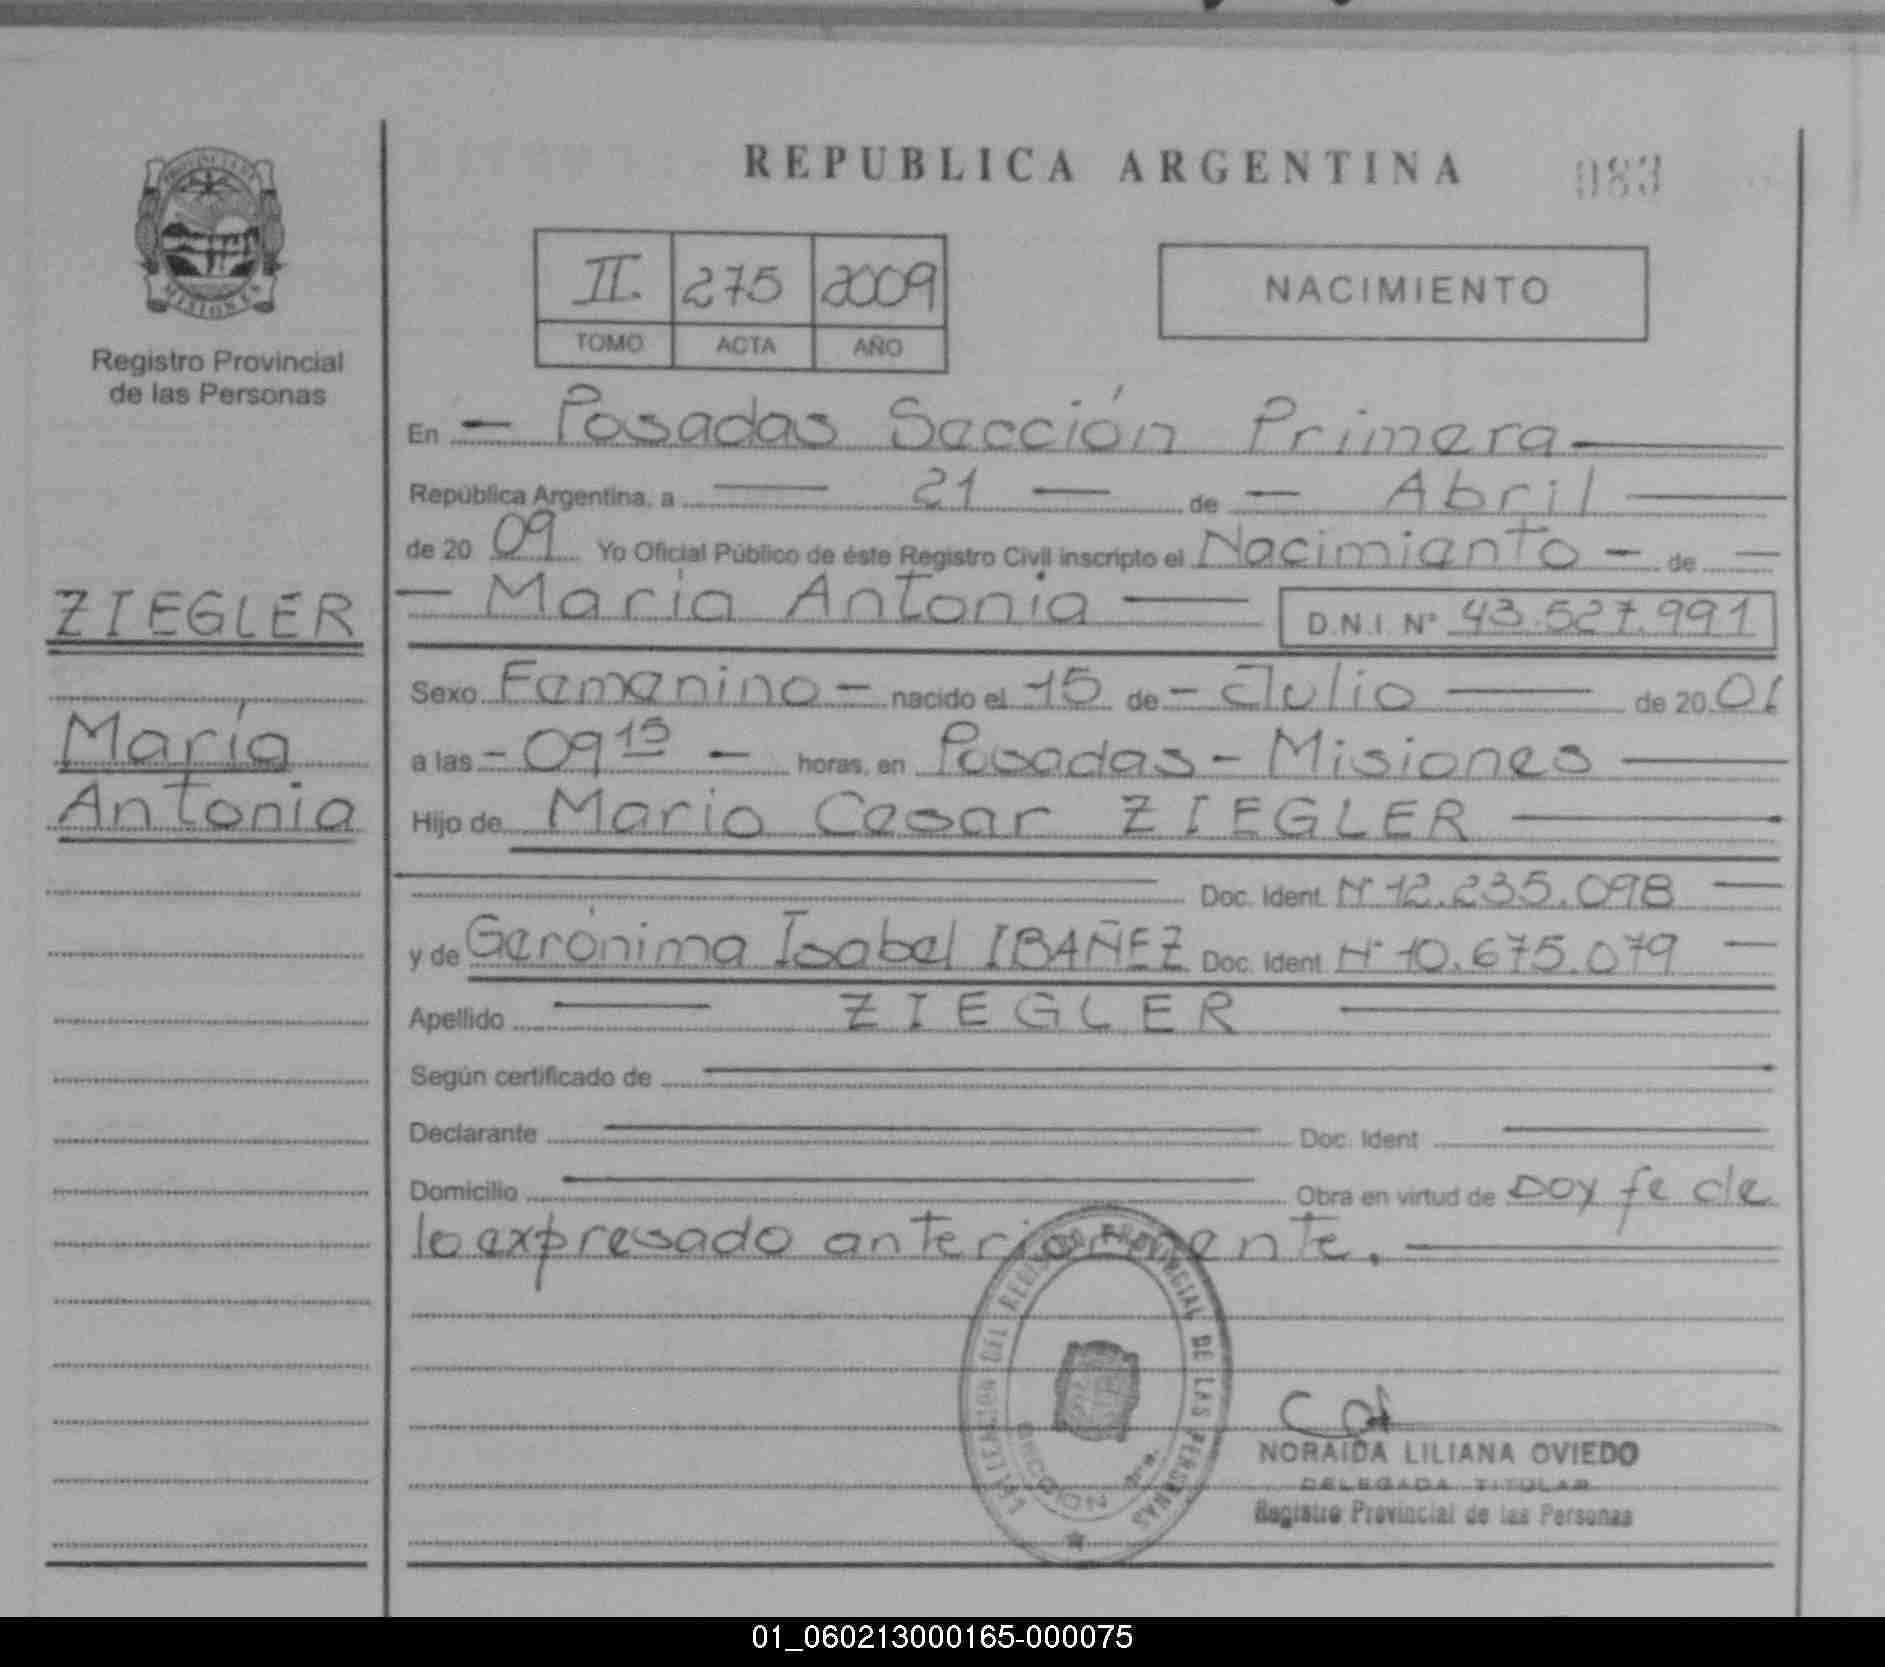 REPUBLICA ARGENTINA
083
PROVINCIA DE
MISIONES
Registro Provincial
de las Personas
II 275 2009
TOMO ACTA AÑO
NACIMIENTO
En — Posadas Sección Primera —
República Argentina, a — 21 — de — Abril —
de 20 09 Yo Oficial Público de éste Registro Civil inscripto el Nacimiento — de —
— María Antonia — D.N.I. Nº 43.527.991
ZIEGLER
María
Antonia
Sexo Femenino — nacido el 15 de — Julio — de 20 01
a las — 09 15 — horas, en Posadas - Misiones —
Hijo de Mario Cesar ZIEGLER —
— Doc. Ident. Nº 12.235.098 —
y de Gerónima Isabel IBAÑEZ Doc. Ident. Nº 10.675.079 —
Apellido — ZIEGLER —
Según certificado de —
Declarante — Doc. Ident —
Domicilio — Obra en virtud de Doy fe de
lo expresado anteriormente. —
DELEGACION DEL REGISTRO PROVINCIAL DE LAS PERSONAS
SECCION
NORAIDA LILIANA OVIEDO
DELEGADA TITULAR
Registro Provincial de las Personas
01_060213000165-000075